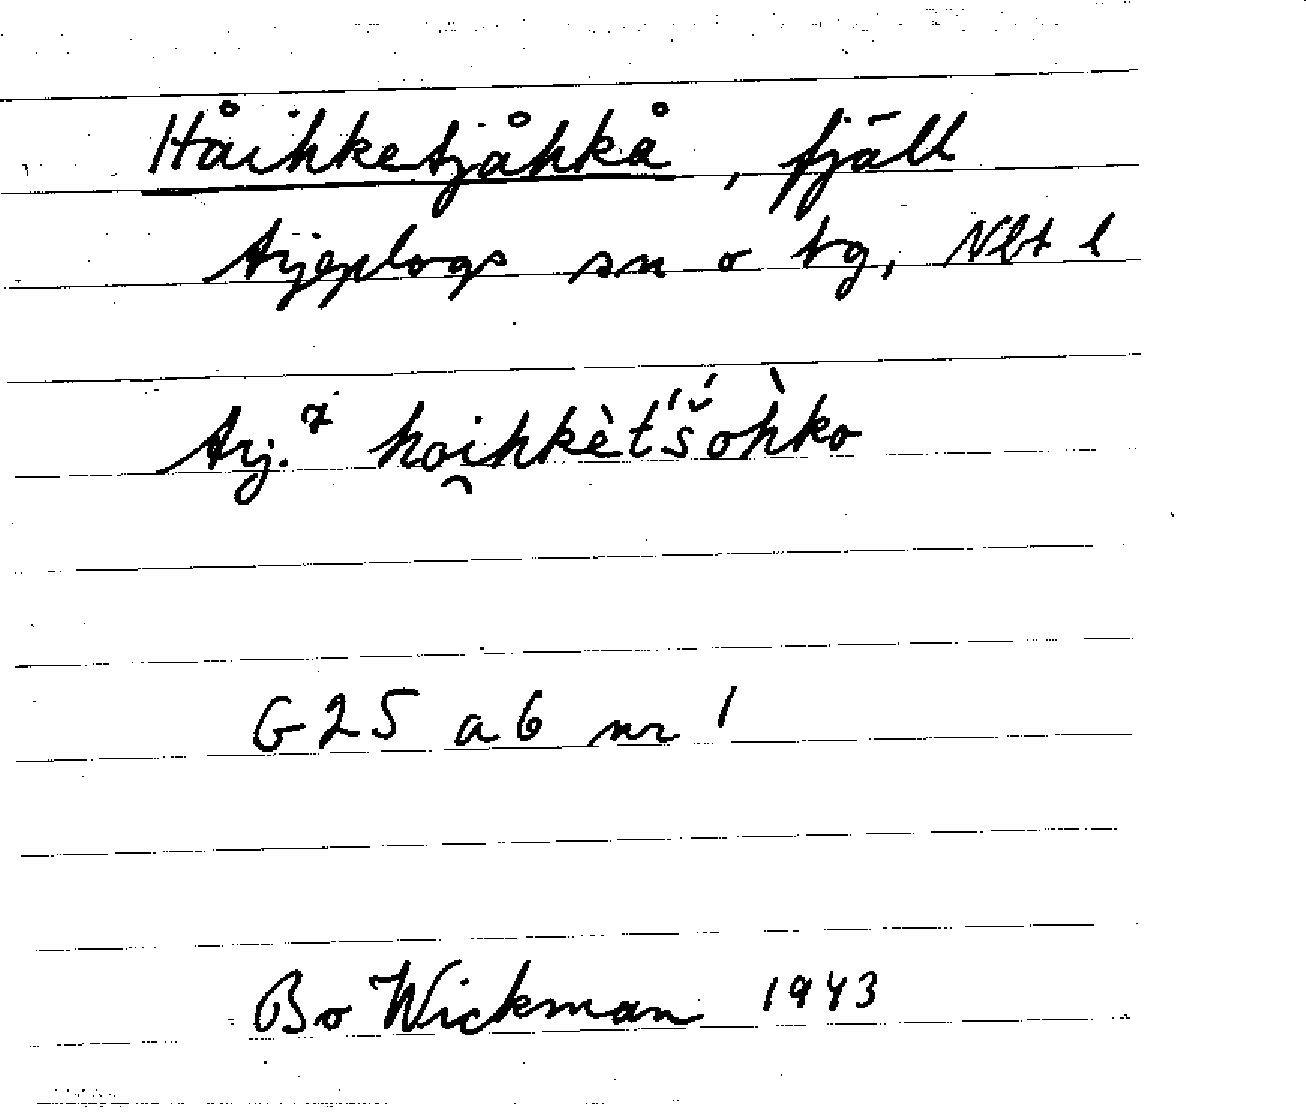 Håihketjåhkå, fjäll
Arjeplogs sn o tg, Nbt l
Arj.⁷ hoi̯hkèt́'š́oh̀ko
G25 a6 nr 1
Bo Wickman 1943